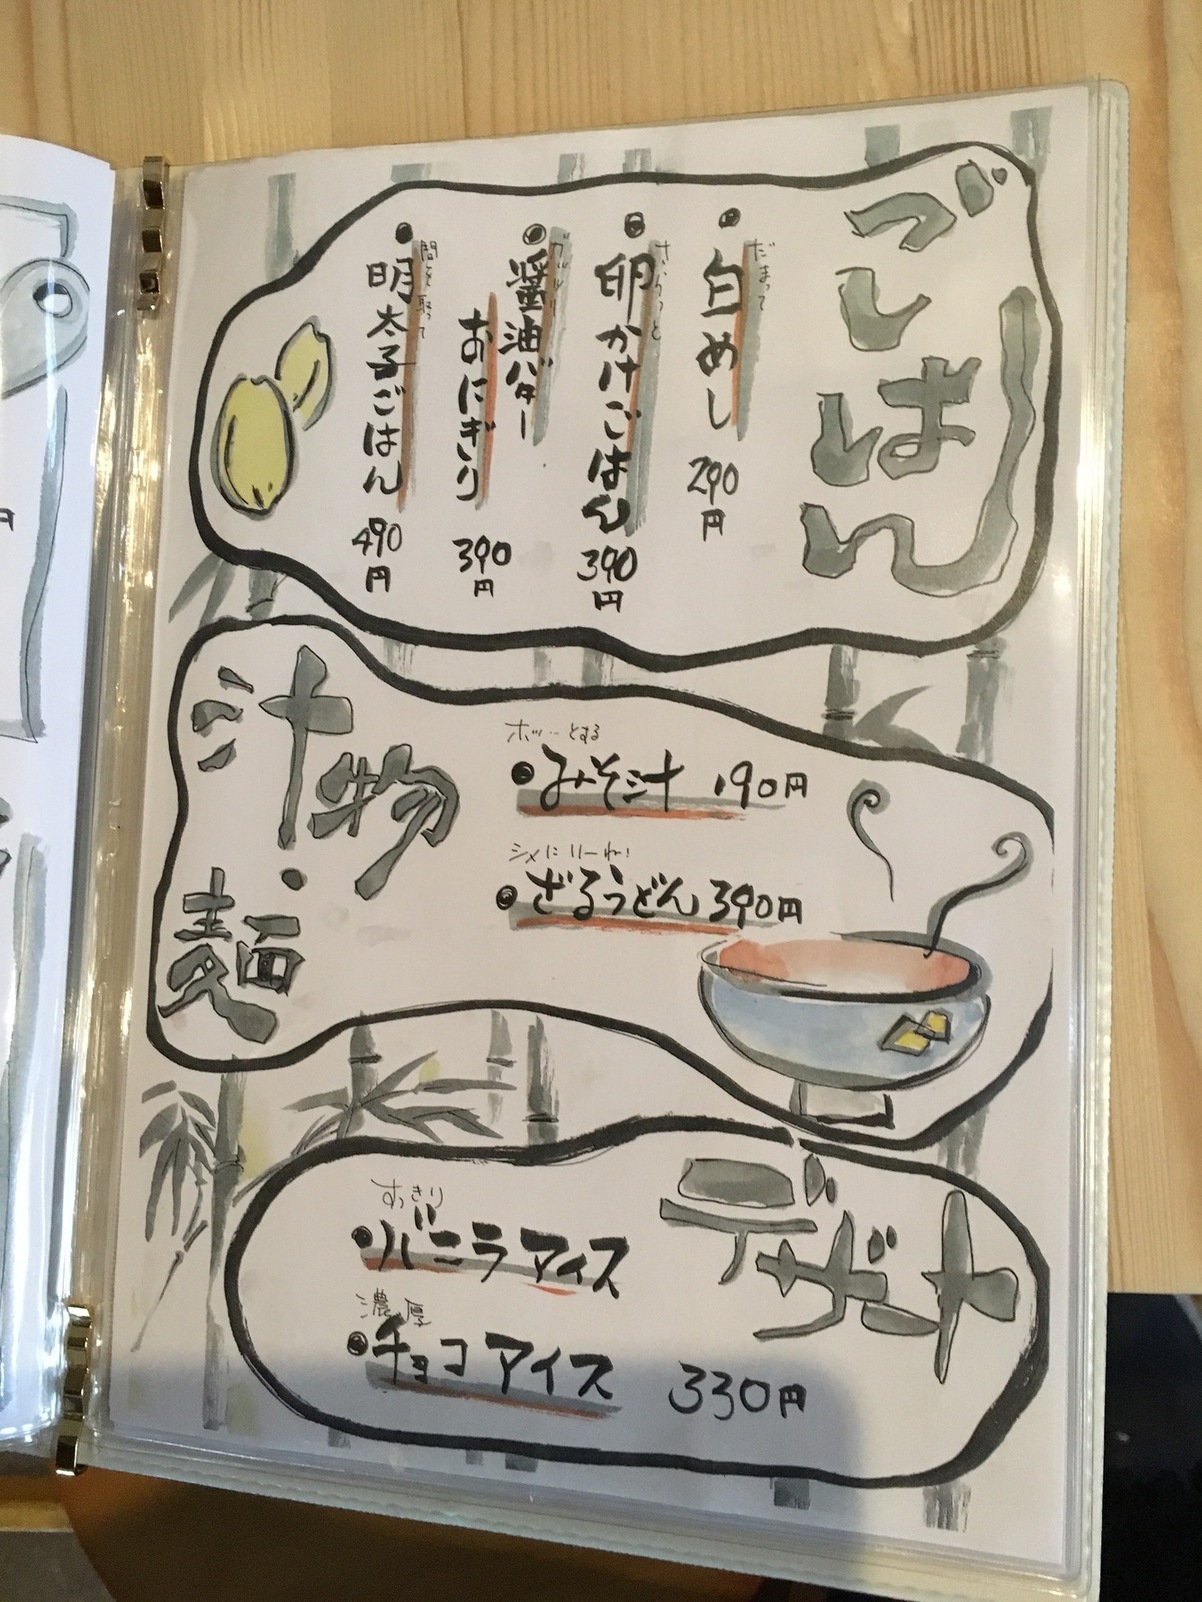 ごはん
だまって
白めし 290円
さらっと
卵かけごはん 390円
醤油バター
おにぎり 390円
間を取って
明太子ごはん 490円
汁物・麺
ホッ…とする
みそ汁 190円
シメにいーね!
ざるうどん 390円
デザート
すっきり
バニラアイス
濃厚
チョコアイス 330円